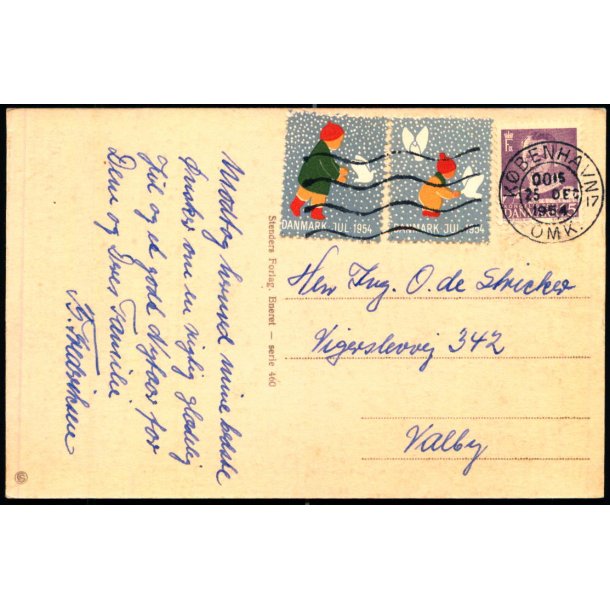 Modtag hermed mine bedste
Ønsker om en rigtig glædelig
Jul og et godt Nytaar for
Dem og Deres Familie
Stenders Forlag. Eneret — serie 460
DANMARK JUL 1954
DANMARK JUL 1954
KØBENHAVN 17
0015
25 DEC
1954
OMK.
DANMARK
Herr Ing. O. de Stricker
Vigerslevvej 342
Valby